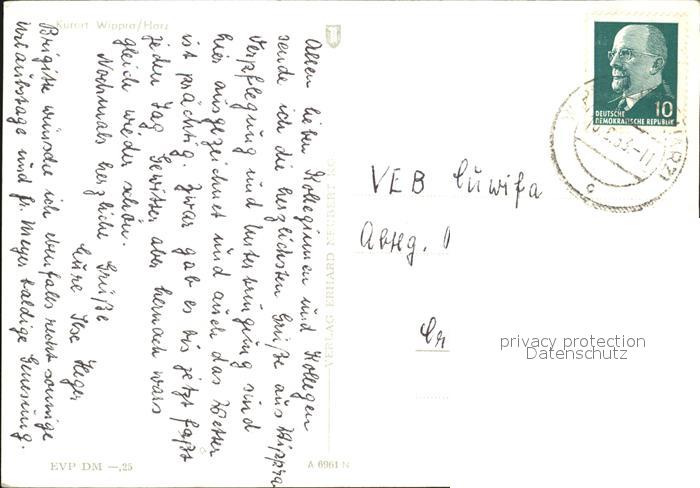 Kurort Wippra/Harz
Allen lieben Kolleginnen und Kollegen
sende ich die herzlichsten Grüße aus Wippra
Verpflegung und Unterbringung sind
hier ausgezeichnet und auch das Wetter
ist prächtig. Zwar gab es bis jetzt faßt
jeden Tag Gewitter aber hernach wars
gleich wieder schön.
Nochmals herzliche Grüße
Eure Ilse Heger
Brigitte wünsche ich ebenfalls recht sonnige
Urlaubstage und Fr. Meyer baldige Genesung.
VERLAG ERHARD NEUBERT KG
EVP DM —,25
A 6961 N
DEUTSCHE
DEMOKRATISCHE REPUBLIK
10
HARZ)
VEB Cuwifa
Abtlg.
privacy protection
Datenschutz